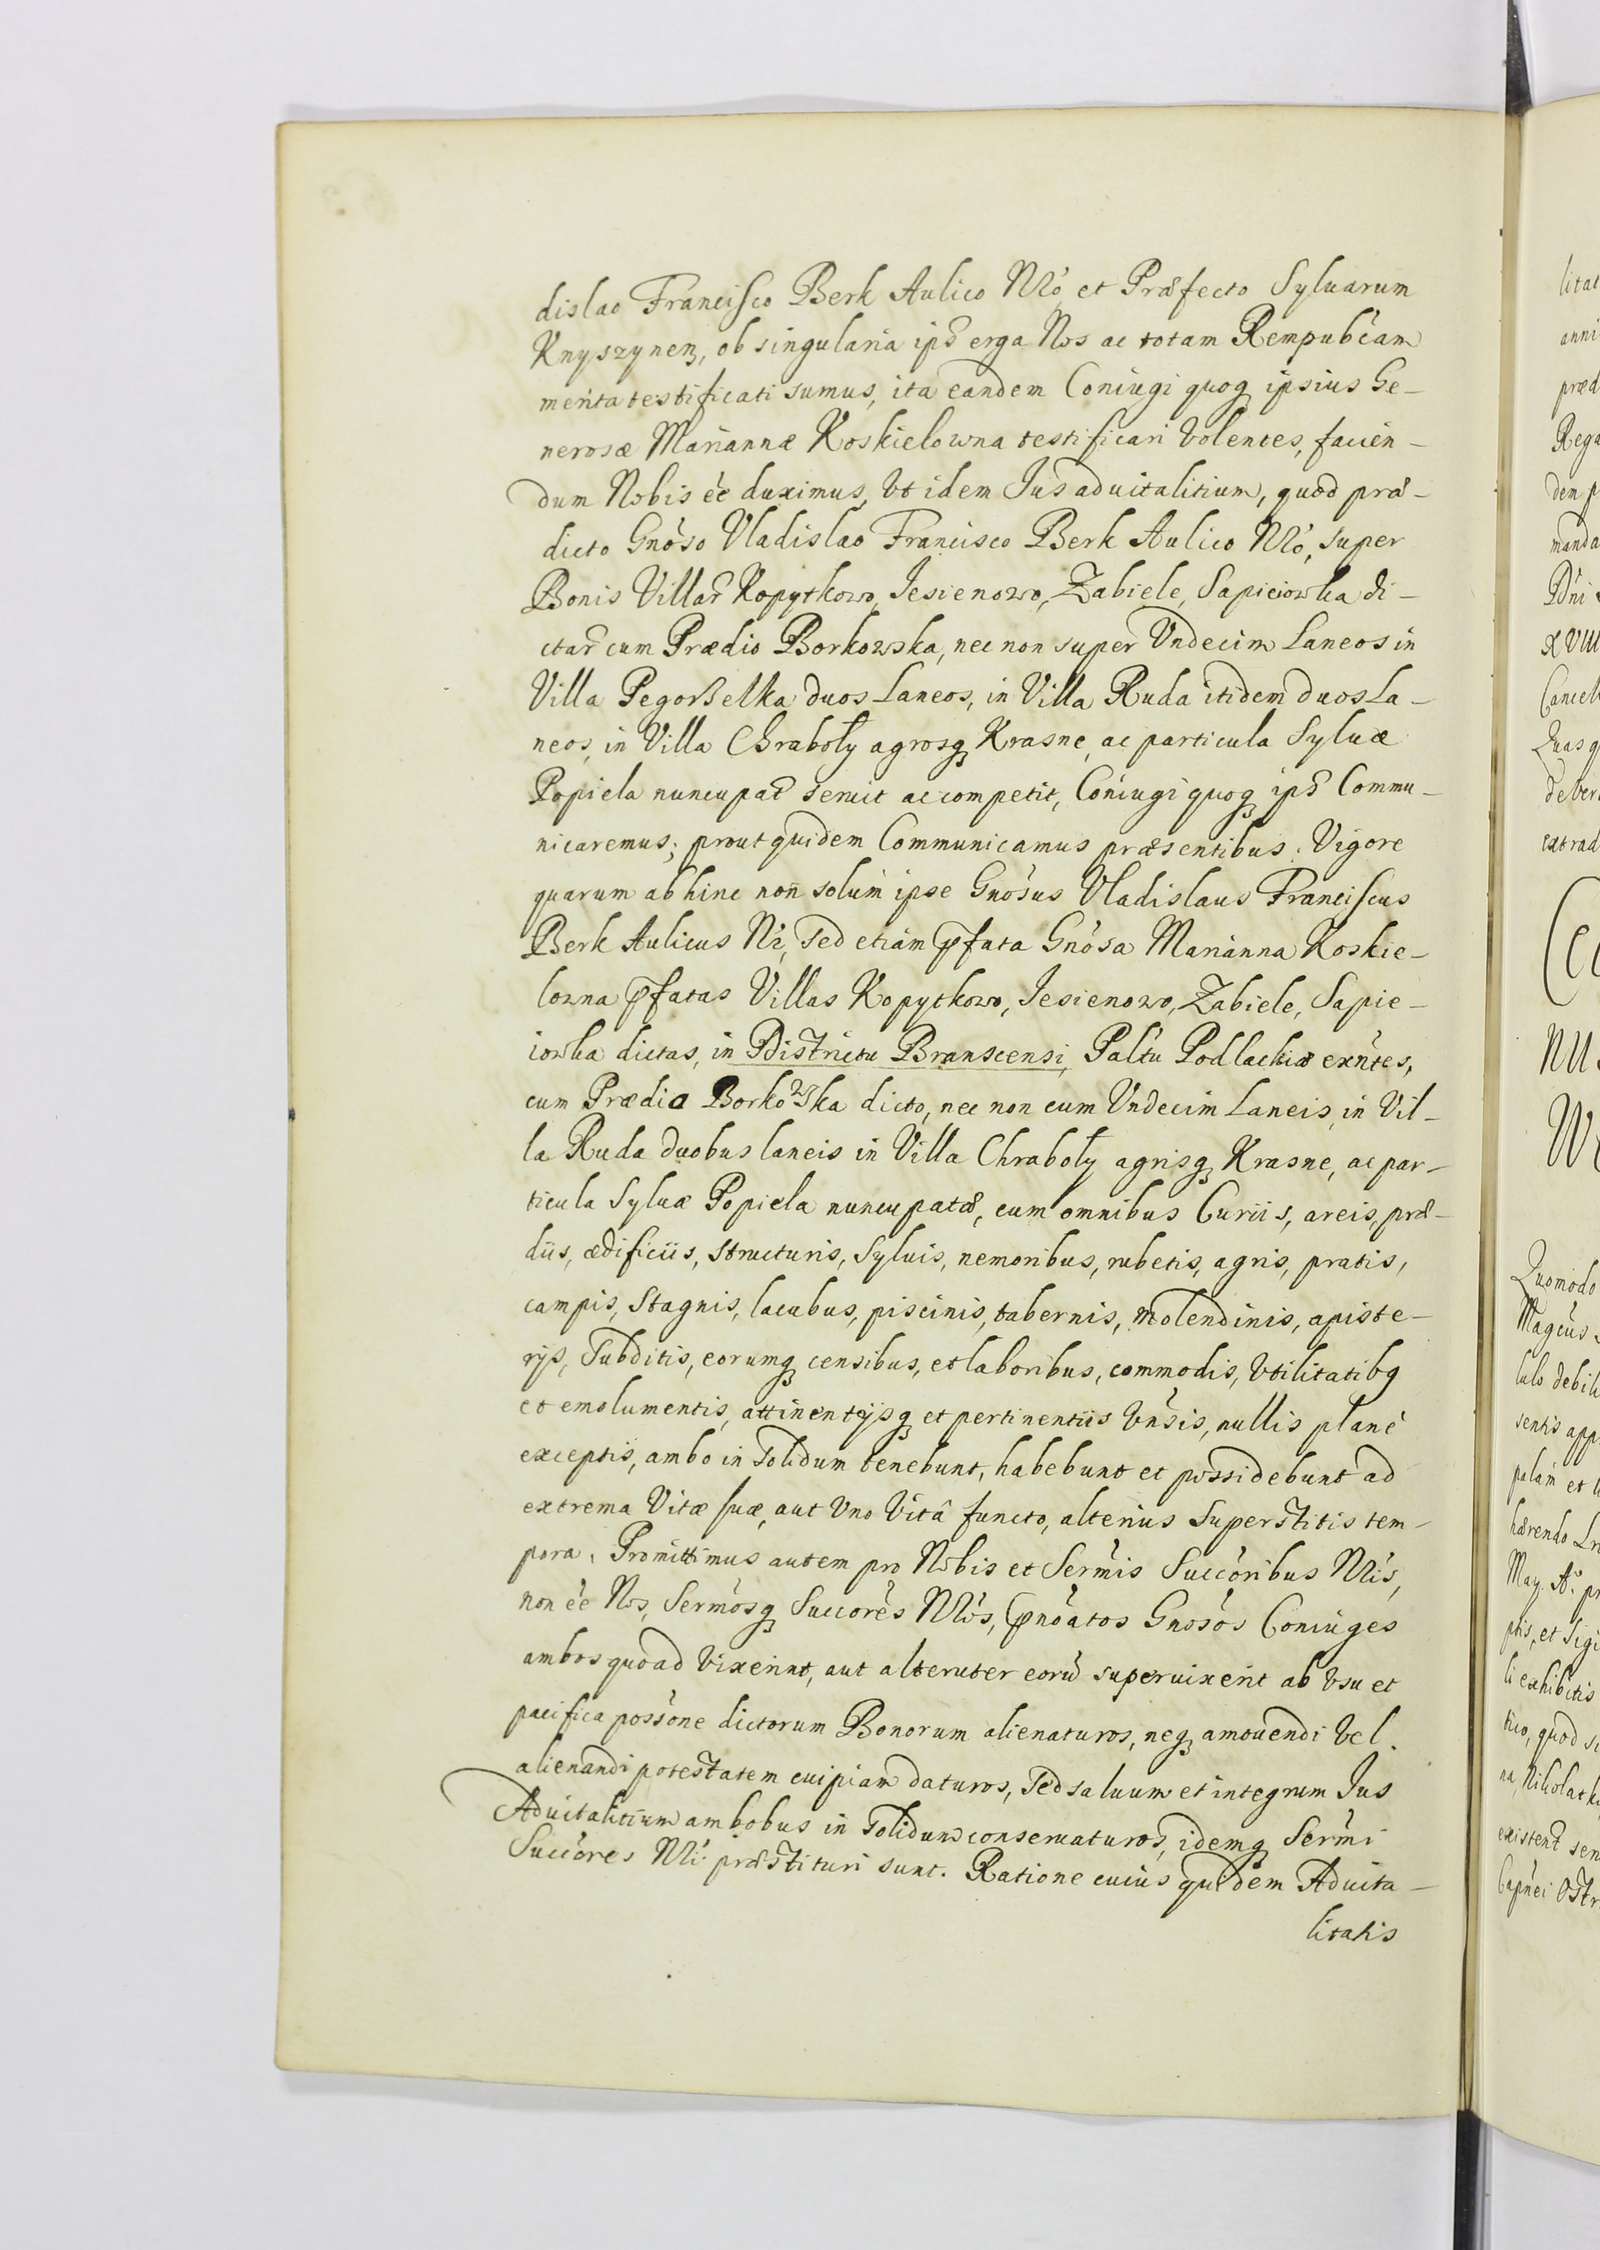 dislao Francisco Berk Aulico Nro, et Præfecto Syluarum
Knyszynen, ob singularia ips erga Nos ac totam Rempubcam
merita testificati sumus, ita eandem Coniugi quoq ipsius Ge-
nerosæ Mariannæ Koskielowna testificari Volentes, facien-
dum Nobis ee duximus, Vt idem Jus aduitalitium, quod præ-
dicto Gnoso Vladislao Francisco Berk Aulico Nro, super
Bonis Villar Kopytkowo, Jesienowo, Zabiele, Sapieiowka di-
ctar cum Prædio Borkowska, nec non super Vndecim Laneos in
Villa Pegorßelka duos Laneos, in Villa Ruda itidem duos La-
neos, in Villa Chraboły agrosq Krasne, ac particula Syluæ
Popiela nuncupat seruit ac competit, Coniugi quoq ips Commu-
nicaremus; prout quidem Communicamus præsentibus. Vigore
quarum abhinc non solum ipse Gnosus Vladislaus Franciscus
Berk Aulicus Nr, sed etiam pfata Gnosa Marianna Koskie-
lowna pfatas Villas Kopytkowo, Jesienowo, Zabiele, Sapie-
iowka dictas, in Districtu Branscensi, Paltu Podlachiæ exntes,
cum Prædio Borkowska dicto, nec non cum Vndecim Laneis, in Vil-
la Ruda duobus laneis in Villa Chraboły agrisq Krasne, ac par-
ticula Syluæ Popiela nuncupatæ, cum omnibus Curiis, areis, præ-
diis, ædificiis, structuris, Syluis, nemoribus, rubetis, agris, pratis,
campis, Stagnis, lacubus, piscinis, tabernis, molendinis, apiste-
rijs, Subditis, eorumq censibus, et laboribus, commodis, Vtilitatibq
et emolumentis, attinentijsq et pertinentiis Vnsis, nullis plane
exceptis, ambo in Solidum tenebunt, habebunt et possidebunt ad
extrema Vitæ suæ, aut Vno Vitâ functo, alterius Superstitis tem-
pora. Promittimus autem pro Nobis et Sermis Succoribus Nris,
non ee Nos, Sermosq Succores Nros, pnoatos Gnosos Coniuges
ambos quoad Vixerint, aut alteruter eorũ superuixerit ab Vsu et
pacifica possone dictorum Bonorum alienaturos, neq amouendi Vel
alienandi potestatem cuipiam daturos, Sed saluum et integrum Jus
Aduitalitium ambobus in Solidum conseruaturos, idemq Sermi
Succores Nri præstituri sunt. Ratione cuius quidem Aduita-
litatis
litat
anni
præd
Rega
den p
manda
XVIII
Cancell
Quas q
extrad
NU
Quomodo
Magcus
lulo debili
sentis app
palam et
hærendo
May. A. pr
ptis, et Sigi
li exhibitis
tico, quod si
existent sen
Capnei Ostr